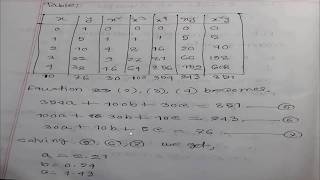 Table:
x y x² x³ x⁴ xy x²y
0 1 0 0 0 0 0
1 5 1 1 1 5 5
2 10 4 8 16 20 40
3 22 9 27 81 66 198
4 38 16 64 256 152 608
10 76 30 100 354 243 851
Equation (2), (3), (4) becomes,
354a + 100b + 30c = 851
100a + 30b + 10c = 243.
30a + 10b + 5c = 76
solving we get,
a = 2.21
b = 0.24
c = 1.43